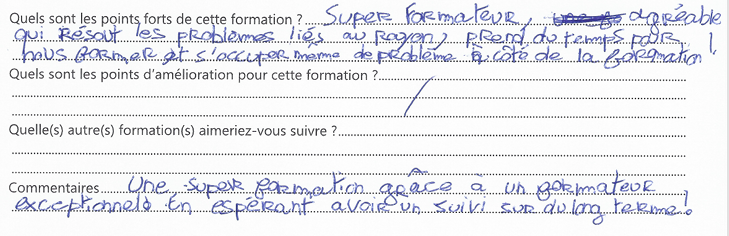 Quels sont les points forts de cette formation ? Super formateur, agréable
qui résout les problèmes liés au rayon, prend du temps pour
nous former et s'occuper meme de problème à côté de la formation !
Quels sont les points d'amélioration pour cette formation ? /
Quelle(s) autre(s) formation(s) aimeriez-vous suivre ?
Commentaires Une super formation grâce à un formateur
exceptionnel. En espérant avoir un suivi sur du long terme !